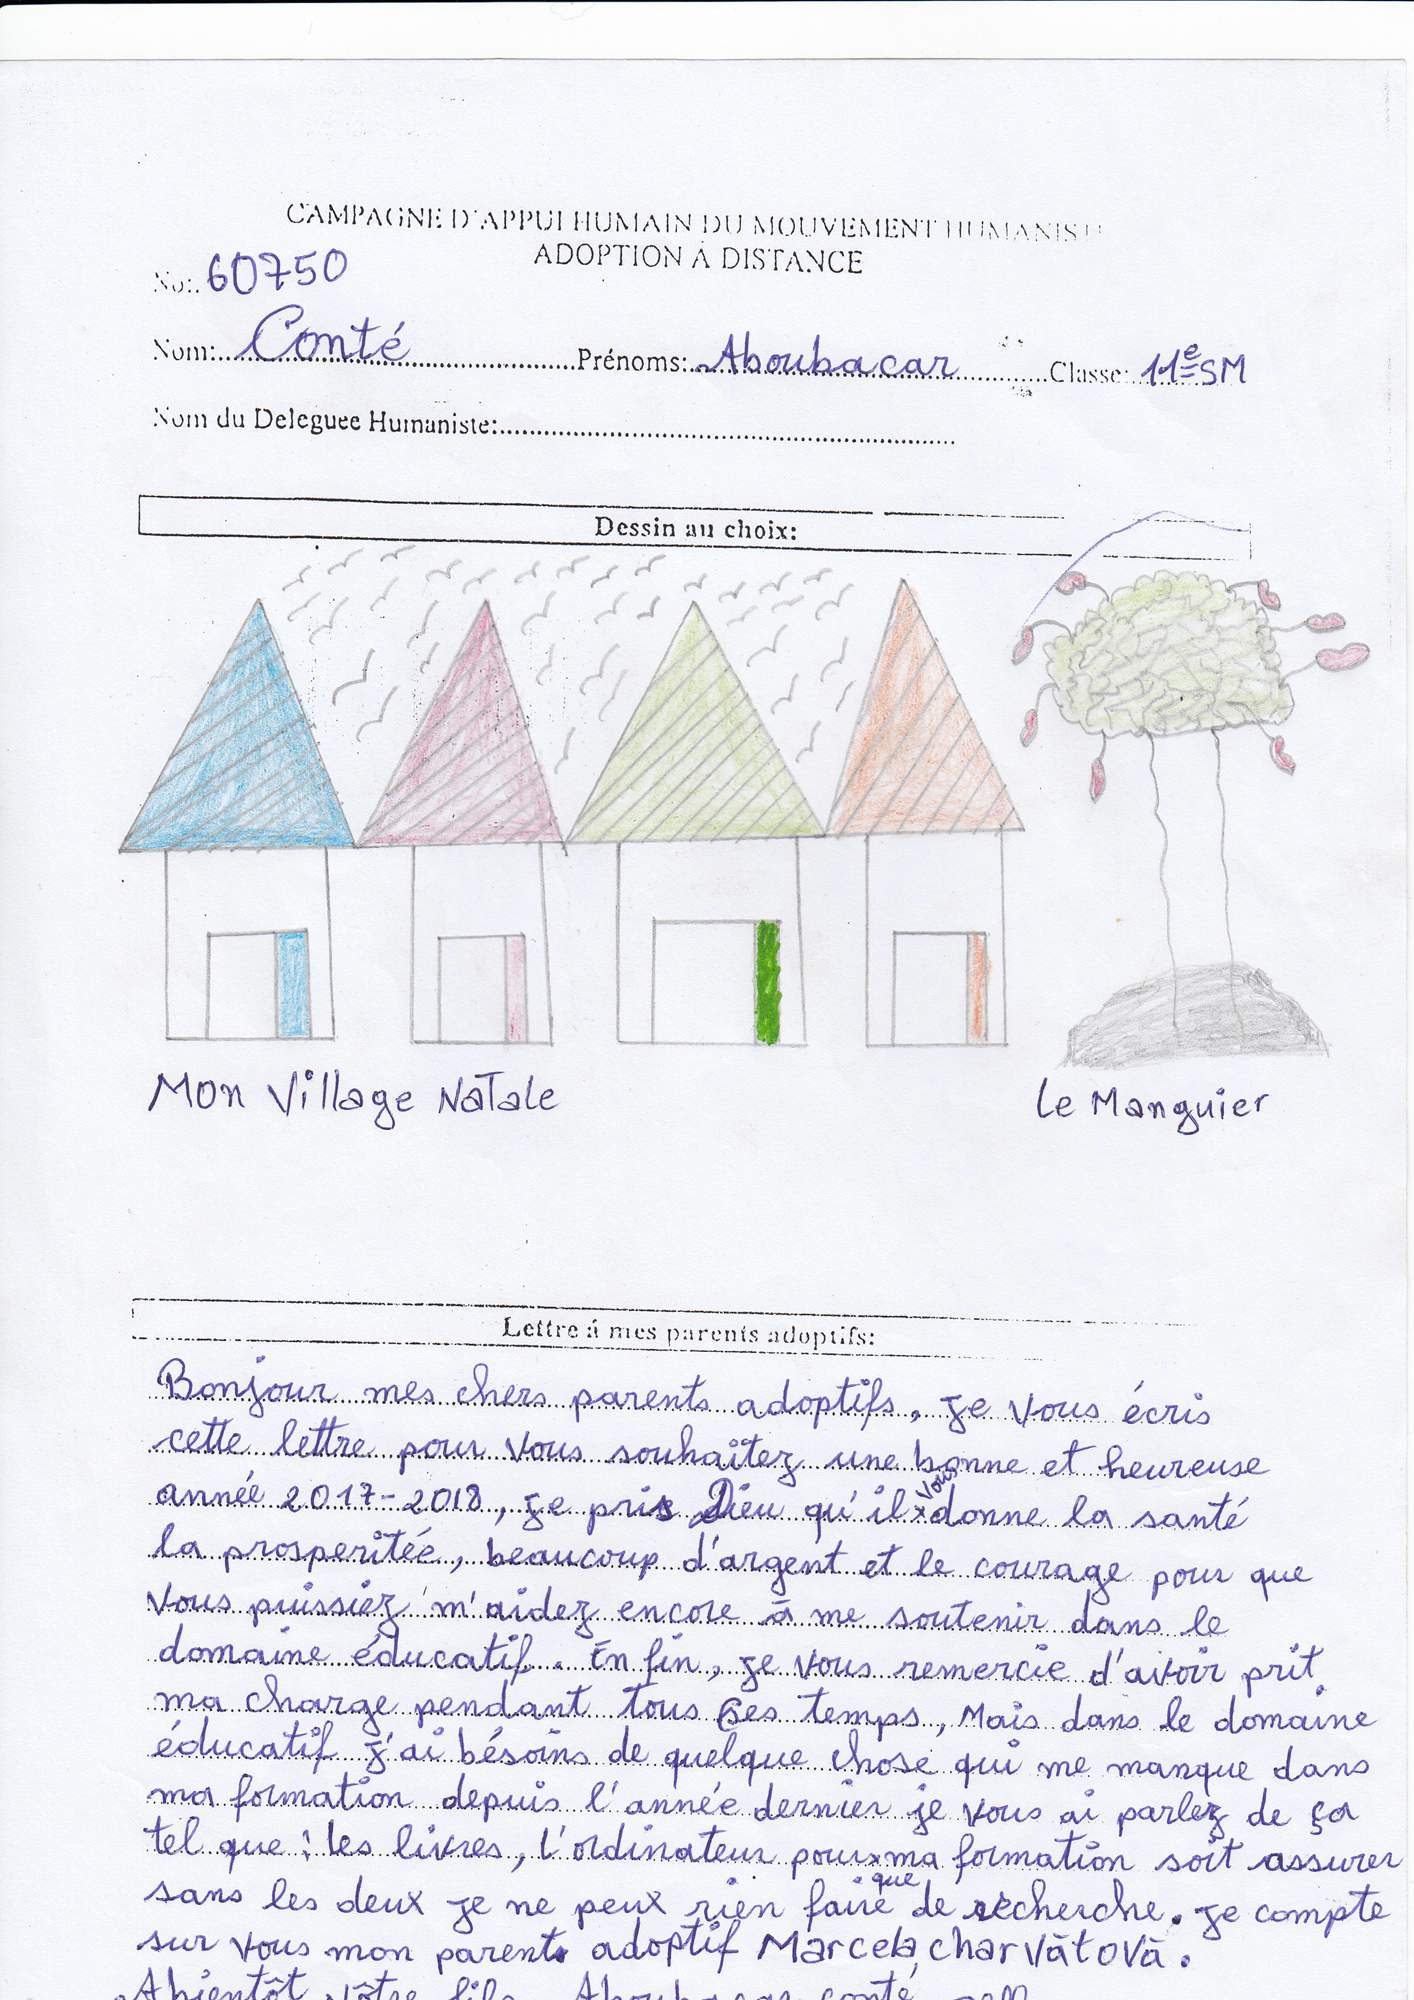 CAMPAGNE D'APPUI HUMAIN DU MOUVEMENT HUMANISTE
ADOPTION À DISTANCE
No:. 60750
Nom:..Conté..........Prénoms:..Aboubacar..........Classe: 11e SM
Nom du Deleguee Humaniste:..........
Dessin au choix:
Mon Village Natale
Le Manguier
Lettre á mes parents adoptifs:
Bonjour mes chers parents adoptifs, je vous écris
cette lettre pour vous souhaitez une bonne et heureuse
année 2017-2018, je pris Dieu qu'il vous donne la santé
la prosperitée, beaucoup d'argent et le courage pour que
vous puissiez m'aidez encore à me soutenir dans le
domaine éducatif. En fin, je vous remercie d'avoir prit
ma charge pendant tous ces temps, Mais dans le domaine
éducatif j'ai bésoins de quelque chose qui me manque dans
ma formation depuis l'année dernier je vous ai parlez de ça
tel que : les livres, l'ordinateur pour que ma formation soit assurer
sans les deux je ne peux rien faire de recherche. Je compte
sur vous mon parent adoptif Marcela charvàtovà.
Abientôt vôtre fils Aboubacar conté